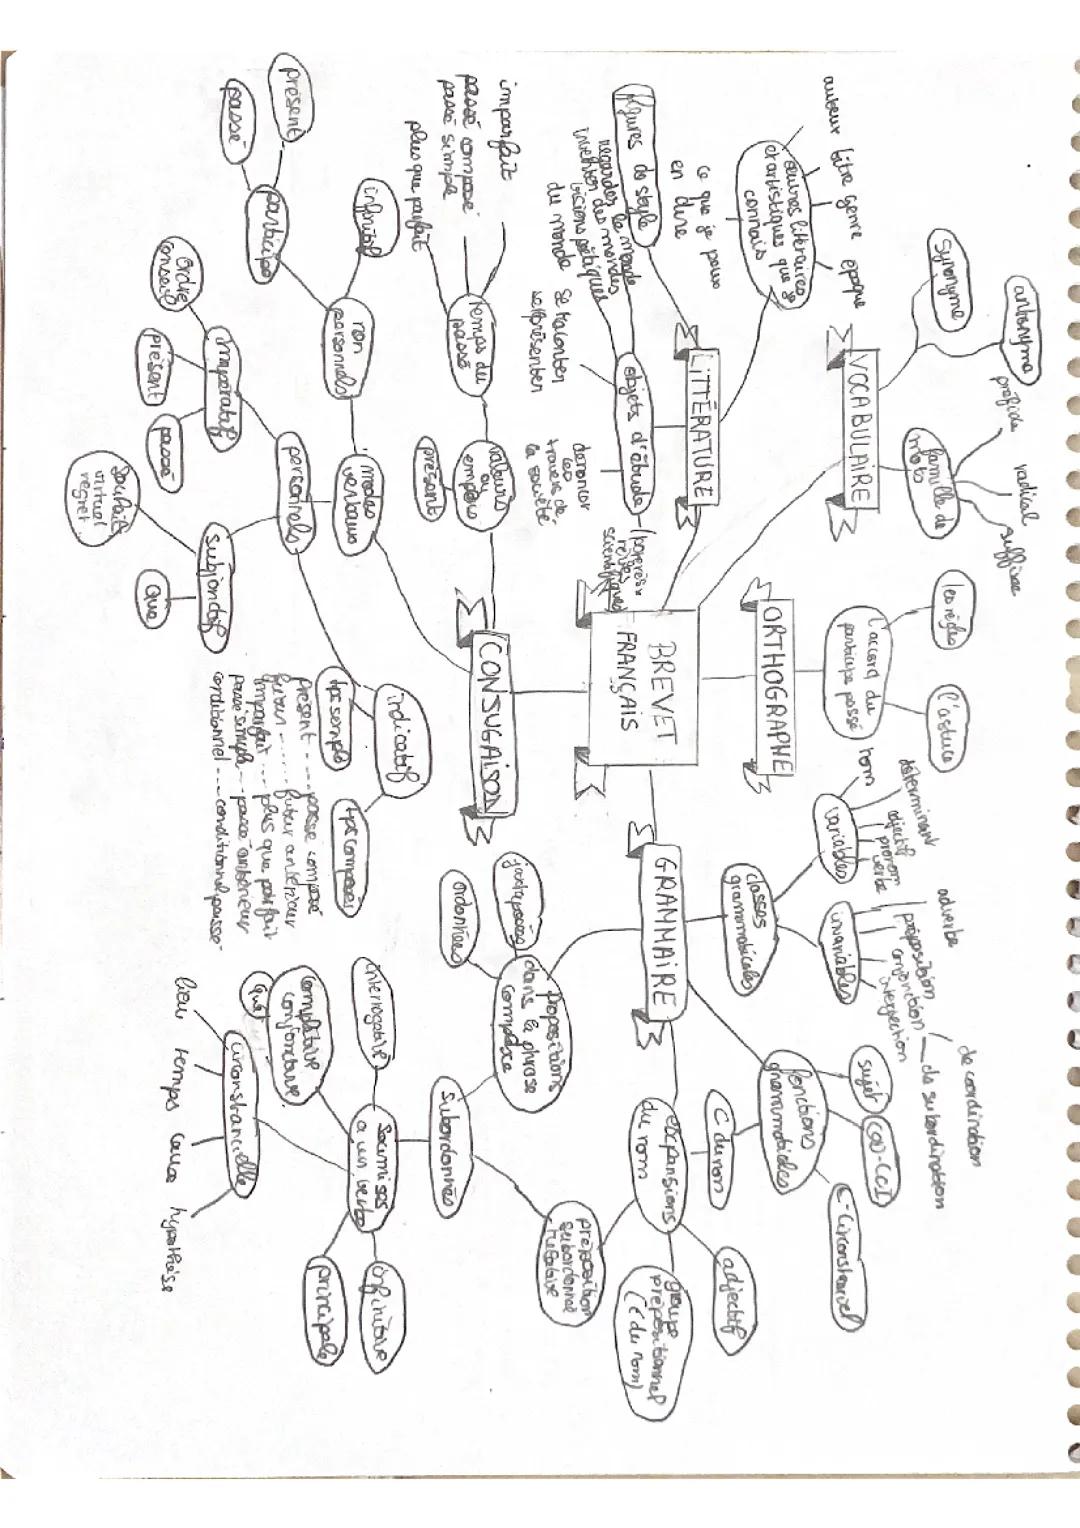 BREVET
FRANÇAIS
VOCABULAIRE
synonyme
antonyme
famille de
mots
préfixe
radical
suffixe
ORTHOGRAPHE
l'accord du
participe passé
les règles
l'astuce
LITTÉRATURE
oeuvres littéraires
et artistiques que je
connais
auteur titre genre époque
ce que je peux
en dire
figures de style
objets d'étude
regarder le monde
inventer des mondes
visions poétiques
du monde
se raconter
se représenter
dénoncer
les
travers de
la société
progrès &
rêves
scientifiques
GRAMMAIRE
classes
grammaticales
variables
nom
déterminant
adjectif
pronom
verbe
invariables
adverbe
préposition
conjonction
interjection
de coordination
de subordination
fonctions
grammaticales
sujet
COD-COI
C-Circonstanciel
C du nom
expansions
du nom
adjectif
groupe
prépositionnel
(C du nom)
préposition
subordonnée
relative
Propositions
dans la phrase
complexe
juxtaposées
ordonnées
Subordonnées
Soumises
à un verbe
interrogative
complétive
conjonctive
que
circonstancielle
lieu temps cause hypothèse
infinitive
principale
CONJUGAISON
valeurs
ou
emplois
présent
temps du
passé
imparfait
passé composé
passé simple
plus que parfait
modes
verbaux
non
personnels
infinitif
participe
présent
passé
personnels
impératif
ordre
conseil
présent
passé
subjonctif
Souhait
virtuel
regret
Que
indicatif
tps simple
tps composés
présent --- passé composé
futur ---- futur antérieur
imparfait --- plus que parfait
passé simple -- passé antérieur
conditionnel --- conditionnel passé